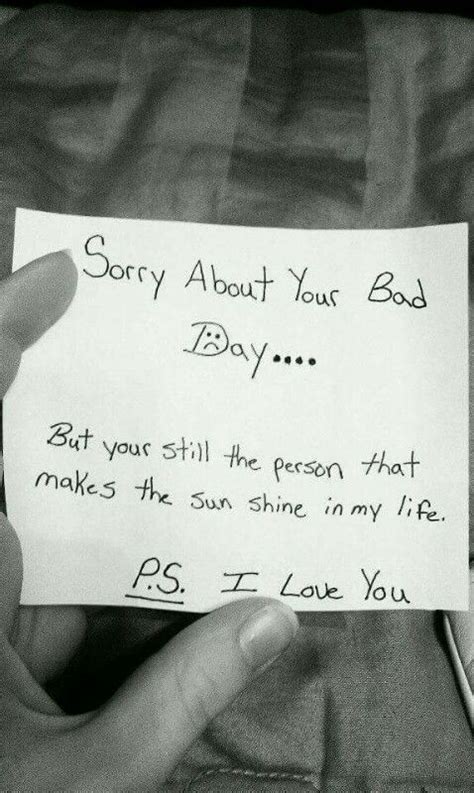 Sorry About Your Bad
Day....
But your still the person that
makes the sun shine in my life.
P.S. I Love You